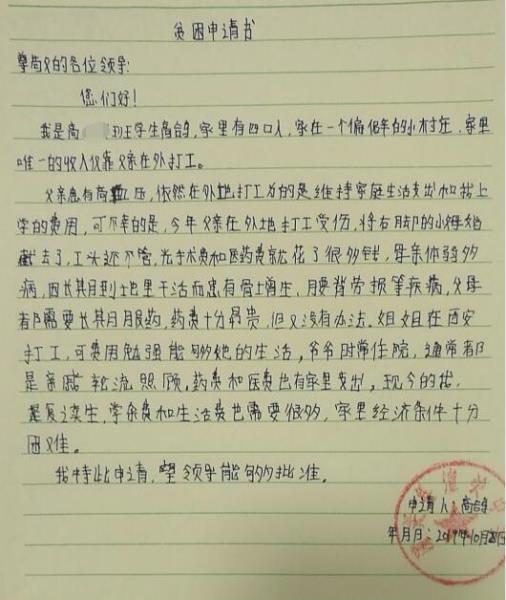 贫困申请书
尊敬的各位领导:
您们好!
我是高 班学生高鸽,家里有四口人,家在一个偏僻的小村庄,家里
唯一的收入仅靠父亲在外打工。
父亲患有高血压,依然在外地打工为的是维持家庭生活支出和我上
学的费用,可不幸的是,今年父亲在外地打工受伤,将右脚的小拇指
截去了,工头还不管,光手术费和医药费就花了很多钱,母亲体弱多
病,因长期到地里干活而患有骨质增生、腰脊劳损等疾病,父母
都需要长期服药,药费十分昂贵,但又没有办法.姐姐在西安
打工,可费用勉强能够她的生活,爷爷时常住院,通常都
是亲戚轮流照顾,药费和医费也有家里支出,现今的我,
是复读生,学杂费和生活费也需要很多,家里经济条件十分
困难。
我特此申请,望领导能够批准。
申请人:高鸽
年月日:2019年10月28日